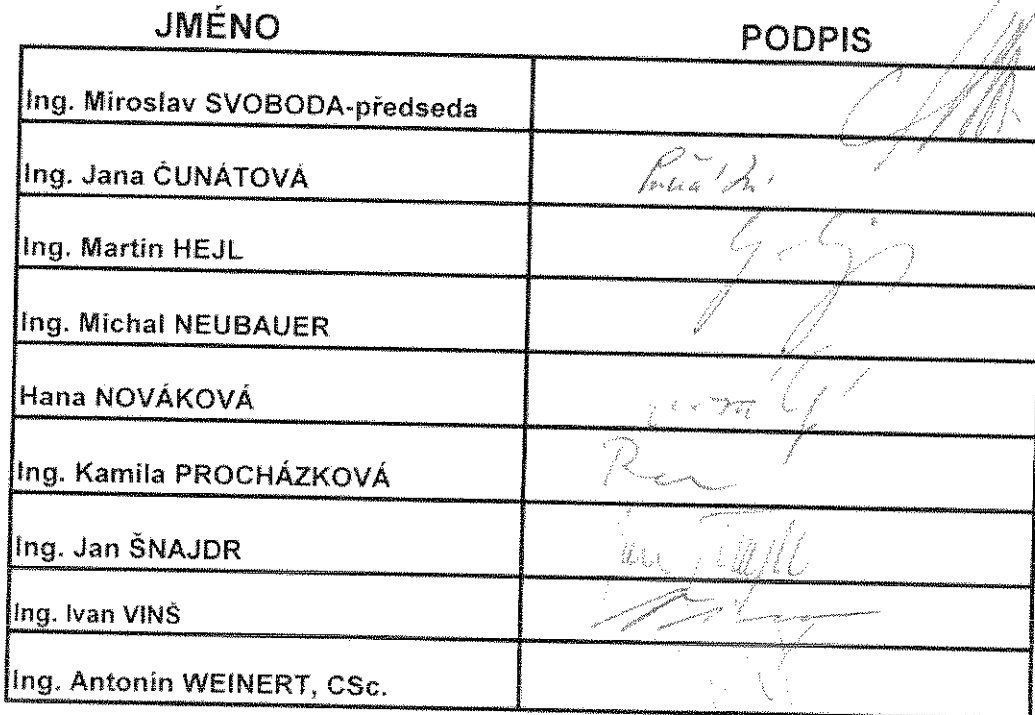 JMÉNO PODPIS
Ing. Miroslav SVOBODA-předseda
Ing. Jana ČUNÁTOVÁ
Ing. Martin HEJL
Ing. Michal NEUBAUER
Hana NOVÁKOVÁ
Ing. Kamila PROCHÁZKOVÁ
Ing. Jan ŠNAJDR
Ing. Ivan VINŠ
Ing. Antonín WEINERT, CSc.